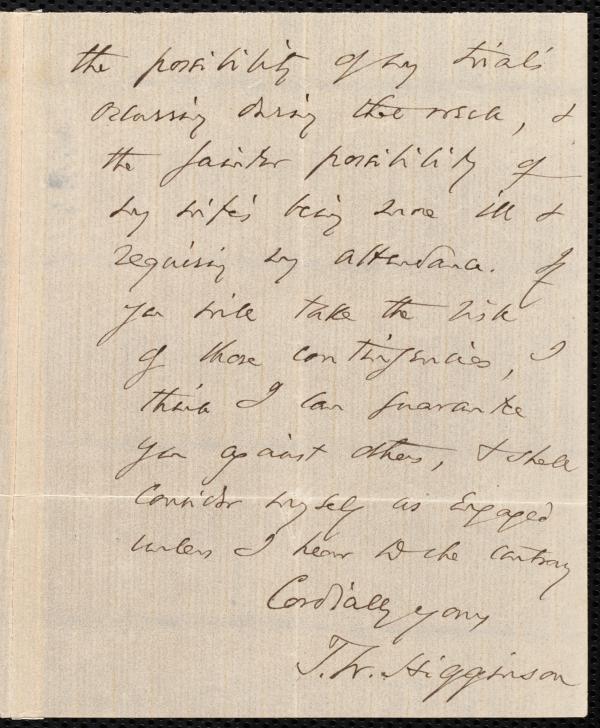 the possibility of my trial's
occurring during the week, &
the fainter possibility of
my wife's being more ill &
requiring my attendance. If
you will take the risk
of those contingencies, I
think I can guarantee
you against others, & shall
consider myself as engaged
unless I hear to the contrary
Cordially yours
T. W. Higginson